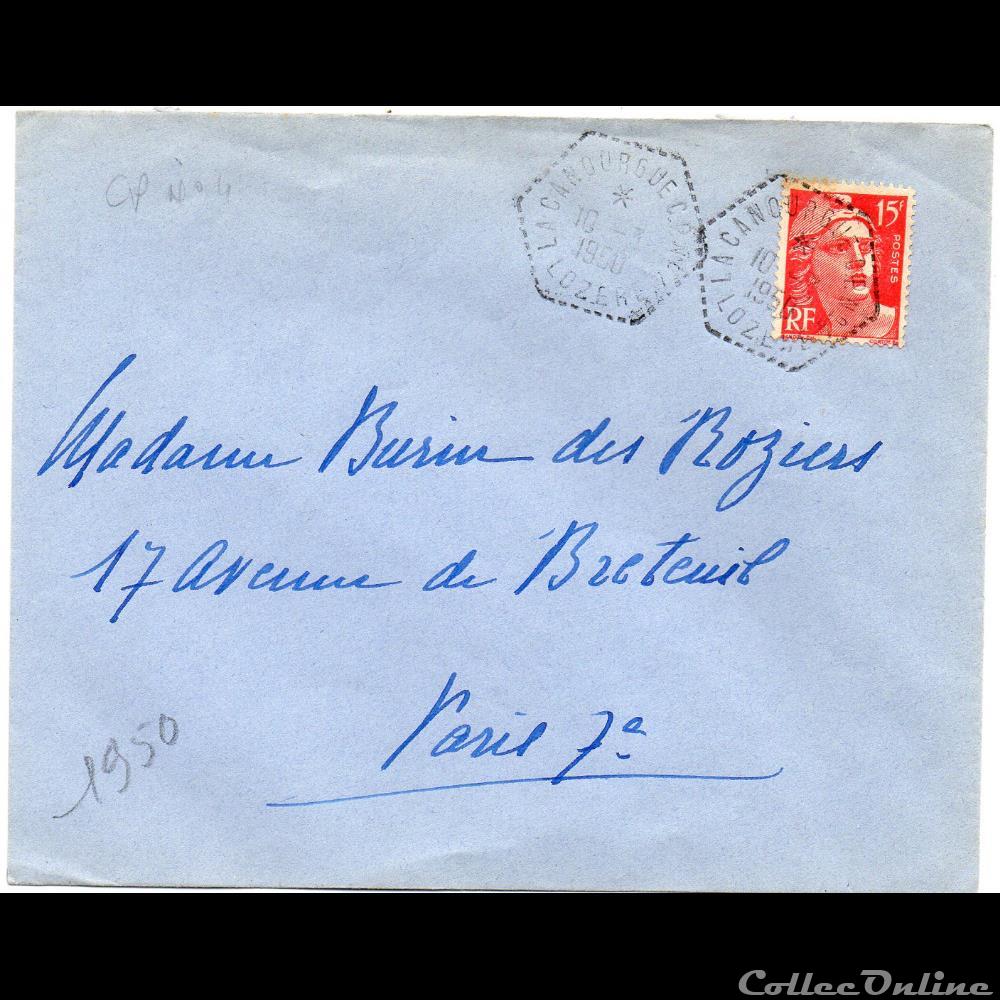 CP N°4
LACANOURGUE C.P N°4
*
10 -
1950
LOZERE
15F
POSTES
RF
LACANOURGUE C.P N°4
10
1950
LOZERE
Madame Burin des Roziers
17 Avenue de Breteuil
Paris 7e
1950
ColleeOnline